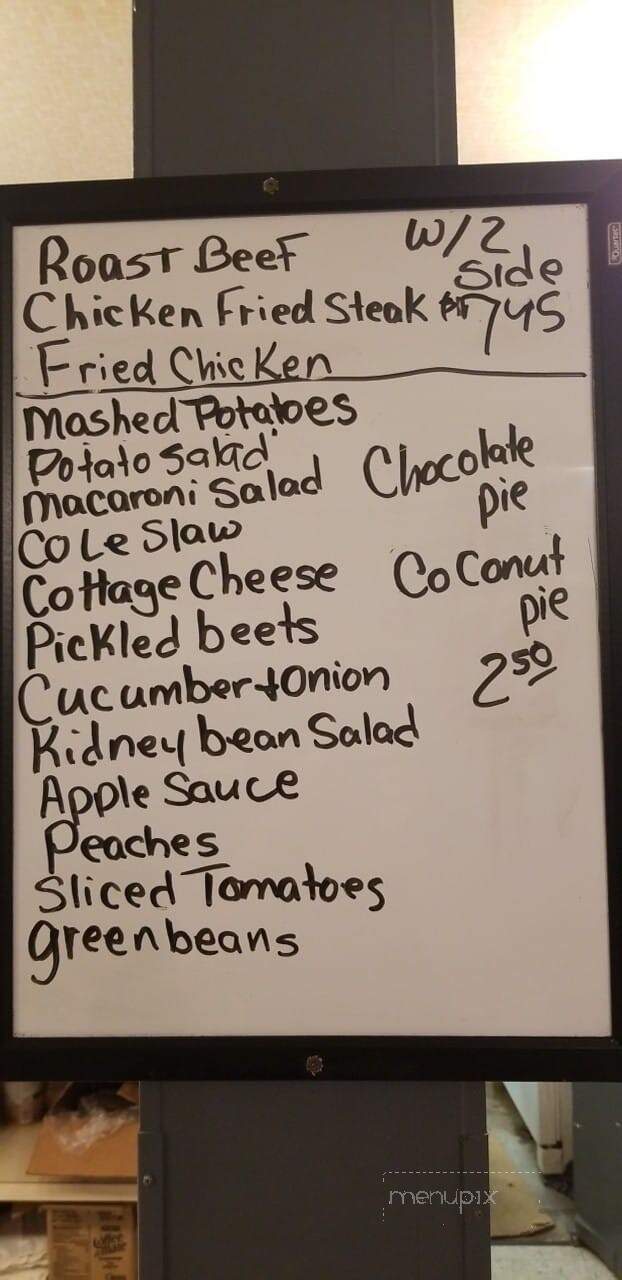 Roast Beef
W/2
side
Chicken Fried Steak
745
Fried Chicken
Mashed Potatoes
Potato Salad
Macaroni Salad
Cole Slaw
Cottage Cheese
Pickled beets
Cucumber + Onion
Kidney bean Salad
Apple Sauce
Peaches
Sliced Tomatoes
green beans
Chocolate
pie
Coconut
pie
2 50
Quartet
menupix